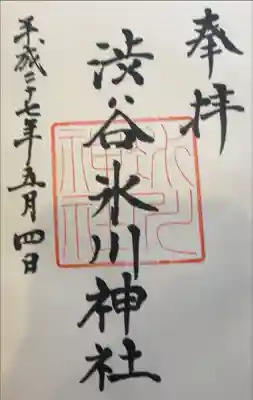 奉拝
渋谷氷川神社
平成二十七年五月四日